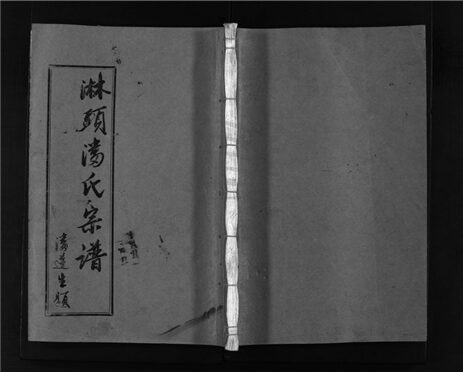 淋頭潘氏宗谱
潘蓬生題